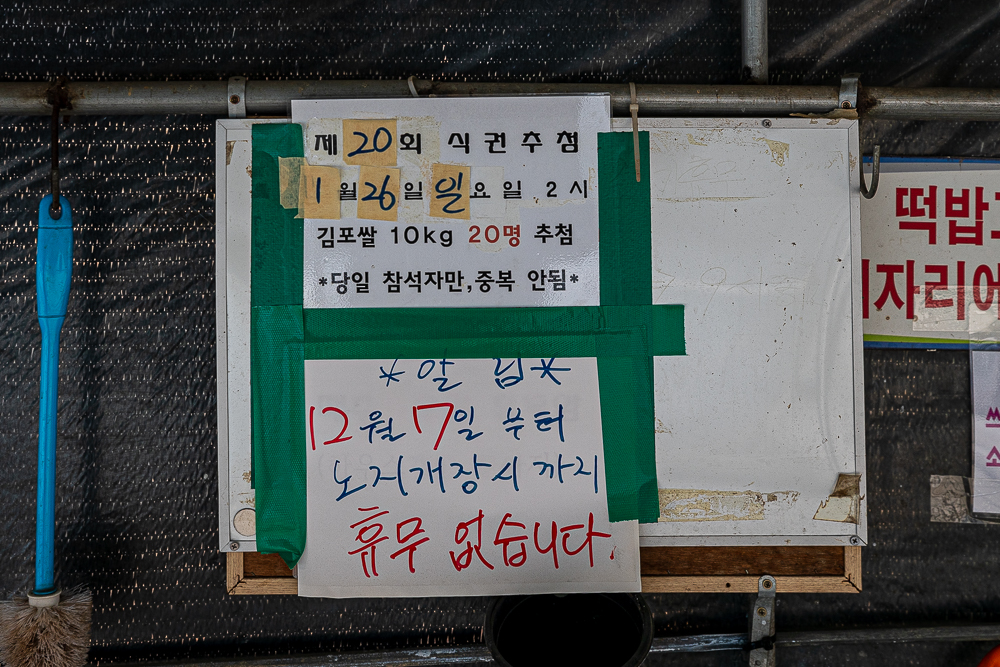 제 20회 식권추첨
1월 26일 일요일 2시
김포쌀 10kg 20명 추첨
*당일 참석자만,중복 안됨*
*알 림*
12월 17일 부터
노지개장시 까지
휴무 없습니다.
떡밥
자리에
쓰
소